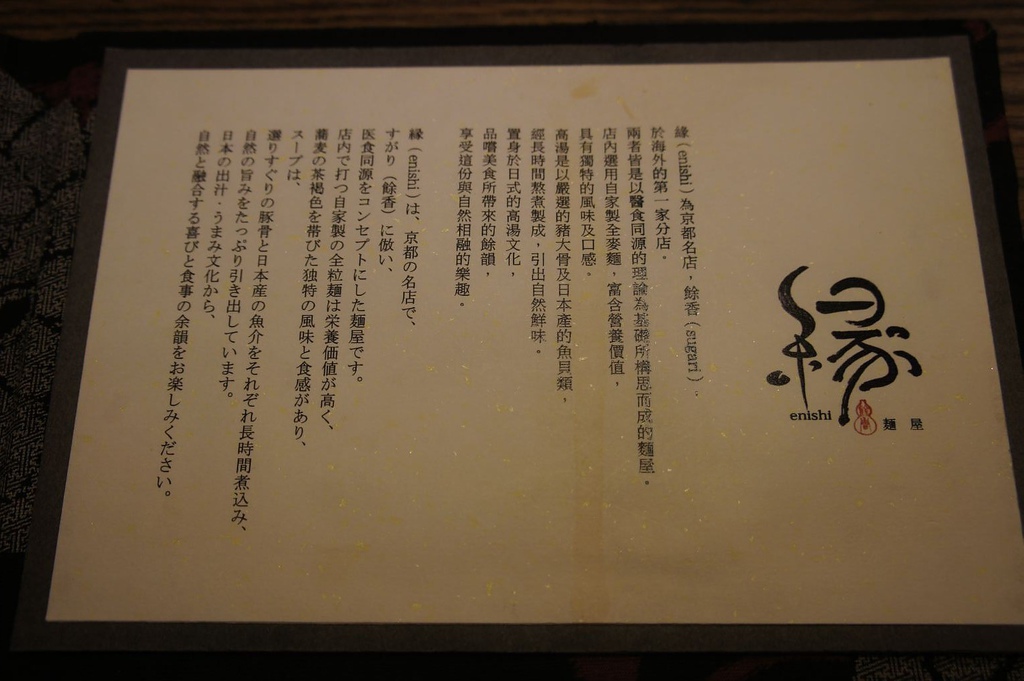 縁
enishi
麵屋
緣（enishi）為京都名店，餘香（sugari）.
於海外的第一家分店。
兩者皆是以醫食同源的理論為基礎所構思而成的麵屋。
店內選用自家製全麥麵，富含營養價值，
具有獨特的風味及口感。
高湯是以嚴選的豬大骨及日本產的魚貝類，
經長時間熬煮製成，引出自然鮮味。
置身於日式的高湯文化，
品嚐美食所帶來的餘韻，
享受這份與自然相融的樂趣。
縁（enishi）は、京都の名店で、
すがり（餘香）に倣い、
医食同源をコンセプトにした麺屋です。
店内で打つ自家製の全粒麺は栄養価値が高く、
蕎麦の茶褐色を帯びた独特の風味と食感があり、
スープは、
選りすぐりの豚骨と日本産の魚介をそれぞれ長時間煮込み、
自然の旨みをたっぷり引き出しています。
日本の出汁・うまみ文化から、
自然と融合する喜びと食事の余韻をお楽しみください。